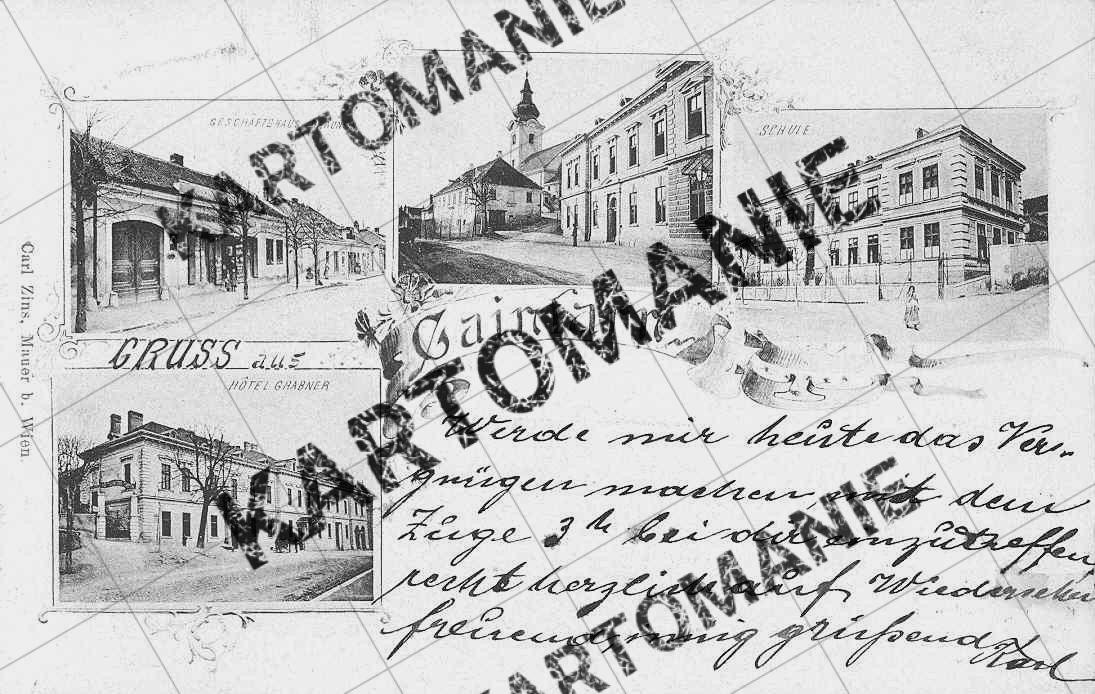 GESCHÄFTSHAUS
SCHULE
GRUSS aus
HÔTEL GRABNER
Carl Zins, Mauer b. Wien.
Werde mir heute das Ver-
gnügen machen mit dem
Zuge 3h bei dir einzutreffen
recht herzlich auf Wiedersehen
freuend, innig grüßend
Karl
KARTOMANIE
KARTOMANIE
KARTOMANIE
KARTOMANIE
KARTOMANIE